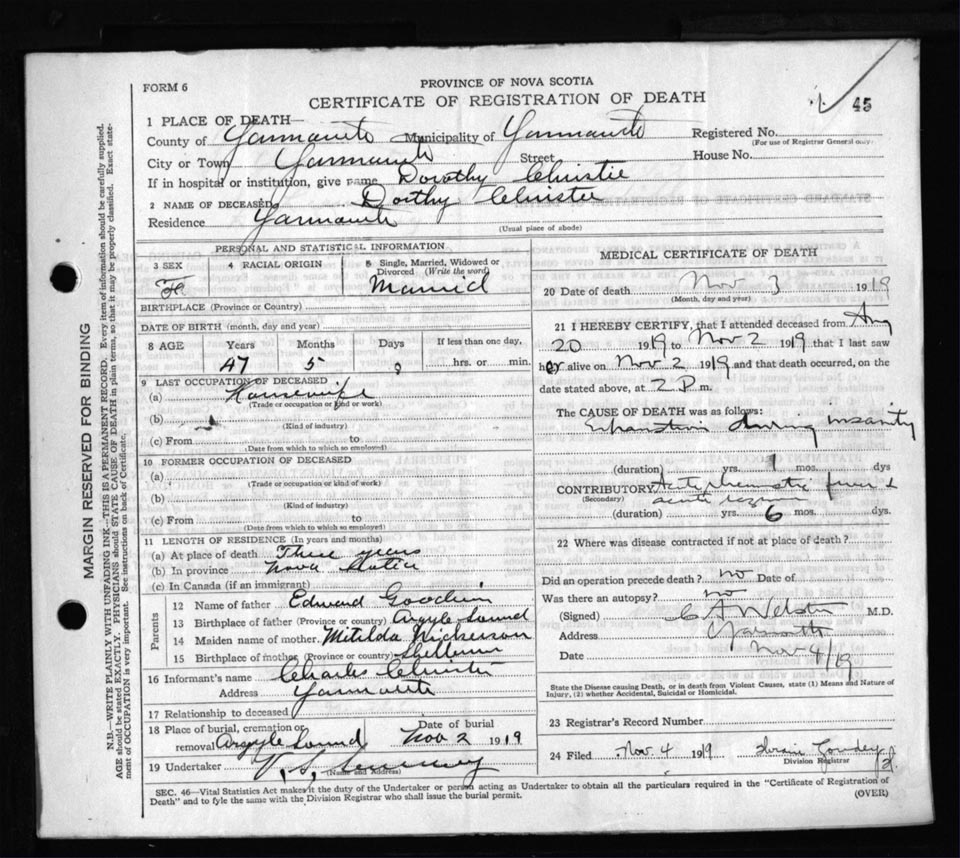 FORM 6
PROVINCE OF NOVA SCOTIA
CERTIFICATE OF REGISTRATION OF DEATH
45
1 PLACE OF DEATH—
County of Yarmouth Municipality of Yarmouth Registered No.
(For use of Registrar General only)
City or Town Yarmouth Street House No.
If in hospital or institution, give name Dorothy Christie
2 NAME OF DECEASED Dorthy Christie
Residence Yarmouth
(Usual place of abode)
PERSONAL AND STATISTICAL INFORMATION
3 SEX 4 RACIAL ORIGIN 5 Single, Married, Widowed or Divorced (Write the word)
Married
BIRTHPLACE (Province or Country)
DATE OF BIRTH (month, day and year)
8 AGE Years Months Days If less than one day,
47 5 hrs. or min.
9 LAST OCCUPATION OF DECEASED
(a) Housewife
(Trade or occupation or kind or work)
(b)
(Kind of industry)
(c) From to
(Date from which to which so employed)
10 FORMER OCCUPATION OF DECEASED
(a)
(Trade or occupation or kind of work)
(b)
(Kind of industry)
(c) From to
(Date from which to which so employed)
11 LENGTH OF RESIDENCE (In years and months)
(a) At place of death Three years
(b) In province Nova Scotia
(c) In Canada (if an immigrant)
Parents
12 Name of father Edward Goodwin
13 Birthplace of father (Province or country) Argyle Sound
14 Maiden name of mother Mitilda Nickerson
15 Birthplace of mother (Province or country)
16 Informant's name Charles Christie
Address Yarmouth
17 Relationship to deceased
18 Place of burial, cremation or removal Argyle Sound Date of burial Nov 2 1919
19 Undertaker V. S. Sweeney
(Name and Address)
MEDICAL CERTIFICATE OF DEATH
20 Date of death Nov 3 1919
(Month, day and year)
21 I HEREBY CERTIFY, that I attended deceased from Aug
20 1919 to Nov 2 1919 that I last saw
her alive on Nov 2 1919 and that death occurred, on the
date stated above, at 2 P m.
The CAUSE OF DEATH was as follows:
Exhaustion during insanity
(duration) yrs. 1 mos. dys
CONTRIBUTORY Acute rheumatic fever &
(Secondary) acute
(duration) yrs. 6 mos. dys.
22 Where was disease contracted if not at place of death?
Did an operation precede death? no Date of
Was there an autopsy? no
(Signed) C A Webster M.D.
Address Yarmouth
Date Nov 4/19
State the Disease causing Death, or in death from Violent Causes, state (1) Means and Nature of Injury, (2) whether Accidental, Suicidal or Homicidal.
23 Registrar's Record Number
24 Filed Nov. 4 1919
Division Registrar
SEC. 46—Vital Statistics Act makes it the duty of the Undertaker or person acting as Undertaker to obtain all the particulars required in the "Certificate of Registration of
Death" and to fyle the same with the Division Registrar who shall issue the burial permit. (OVER)
MARGIN RESERVED FOR BINDING
N.B.—WRITE PLAINLY WITH UNFADING INK—THIS IS A PERMANENT RECORD. Every item of information should be carefully supplied.
AGE should be stated EXACTLY. PHYSICIANS should STATE CAUSE OF DEATH in plain terms, so that it may be properly classified. Exact statement of OCCUPATION is very important. See instructions on back of Certificate.